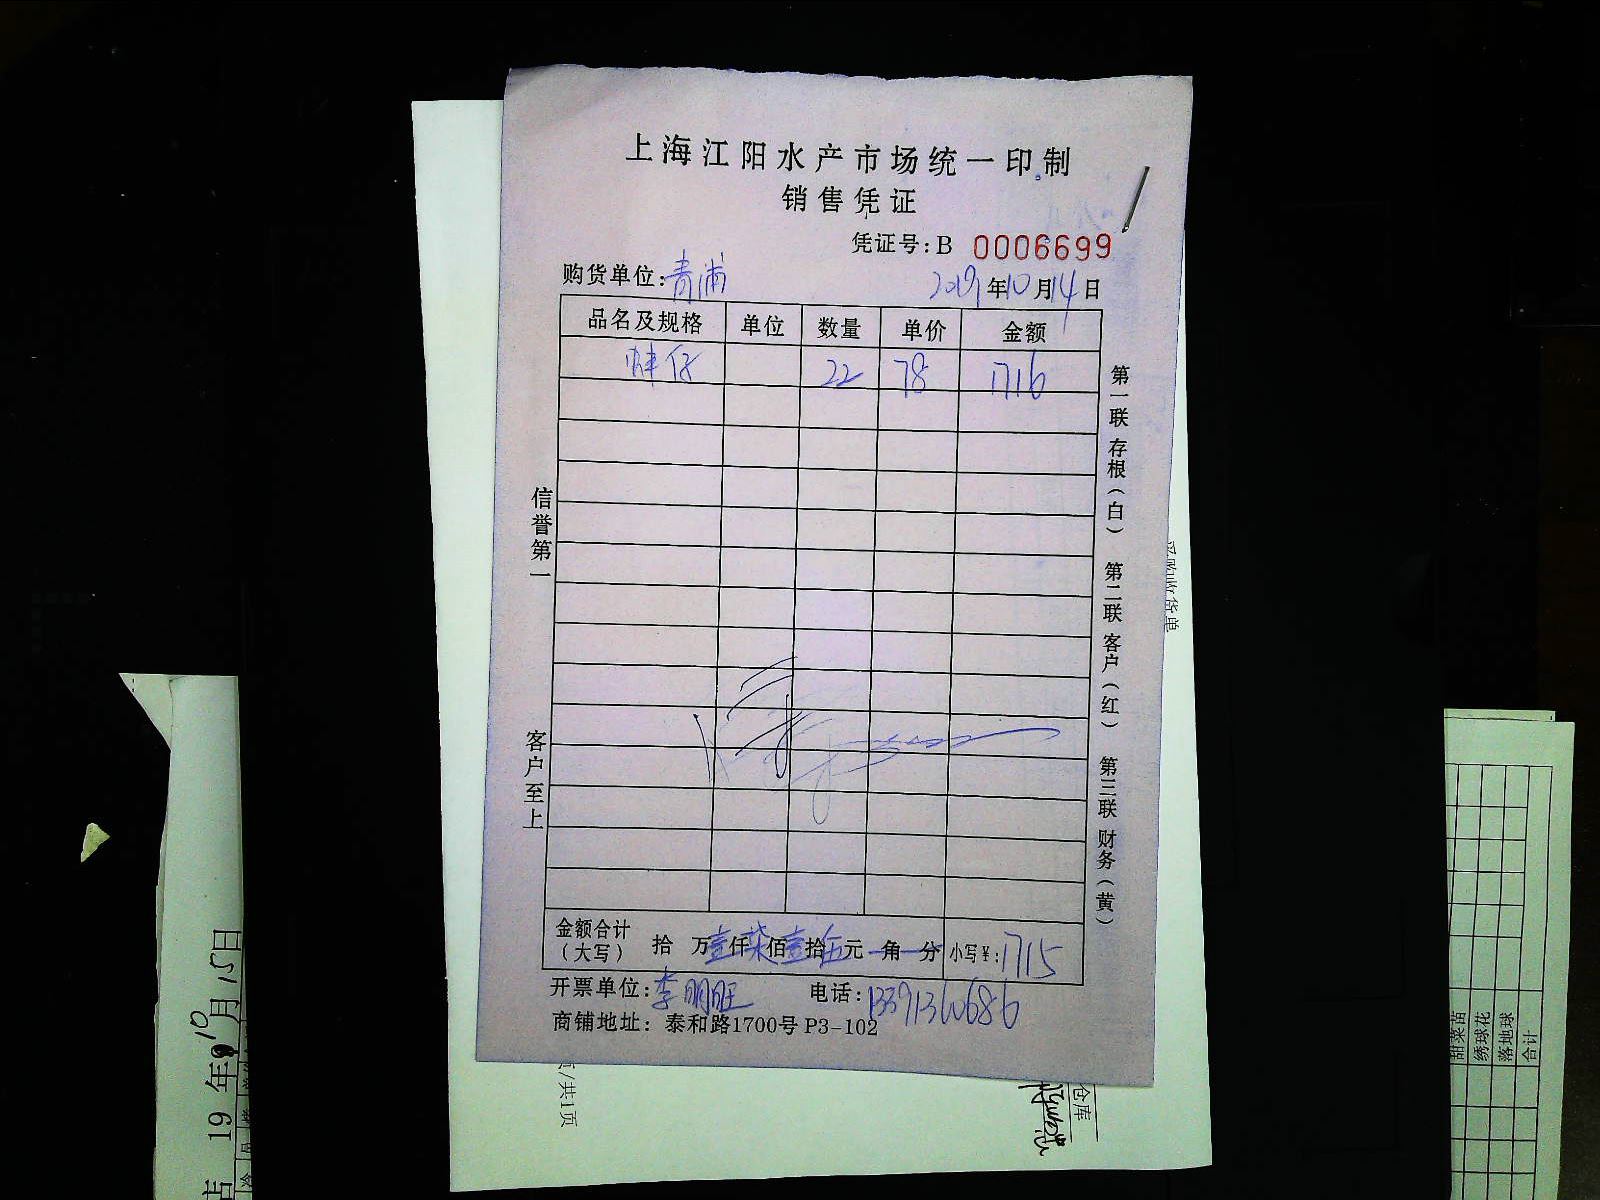 上海江阳水产市场统一印制
销售凭证
凭证号:B 0006699
购货单位:青浦 2019年10月14日
品名及规格 单位 数量 单价 金额
仔 22 78 1716
信誉第一
客户至上
第一联 存根(白) 第二联 客户(红) 第三联 财务(黄)
金额合计(大写) 拾 万壹仟柒佰壹拾伍元 角 分 小写¥:1715
开票单位:李明旺 电话:13391360686
商铺地址:泰和路1700号 P3-102
采购收货单
页/共1页
仓库
19 年10月15日
甜菜苗
绣球花
落地球
合计